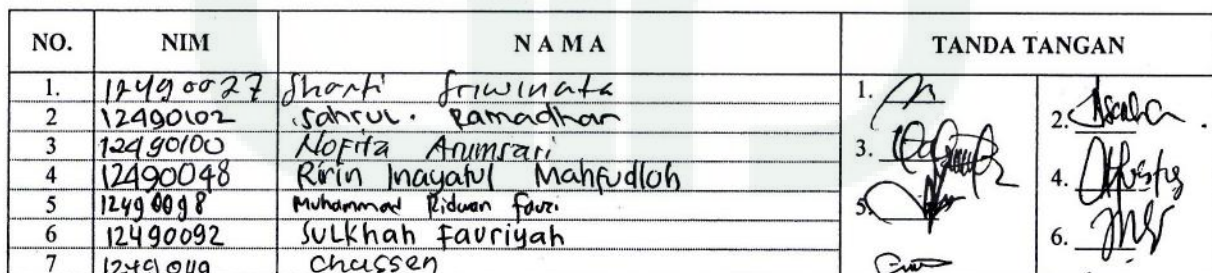 NO. NIM NAMA TANDA TANGAN
1. 12490027 Shanti Sriwinata 1.
2 12490102 Sahrul. Ramadhan 2.
3 12490100 Nofita Arumsari 3.
4 12490048 Ririn Inayatul Mahfudloh 4.
5 12490098 Muhammad Ridwan Fauzi 5.
6 12490092 Sulkhah Fauriyah 6.
7 Chussen